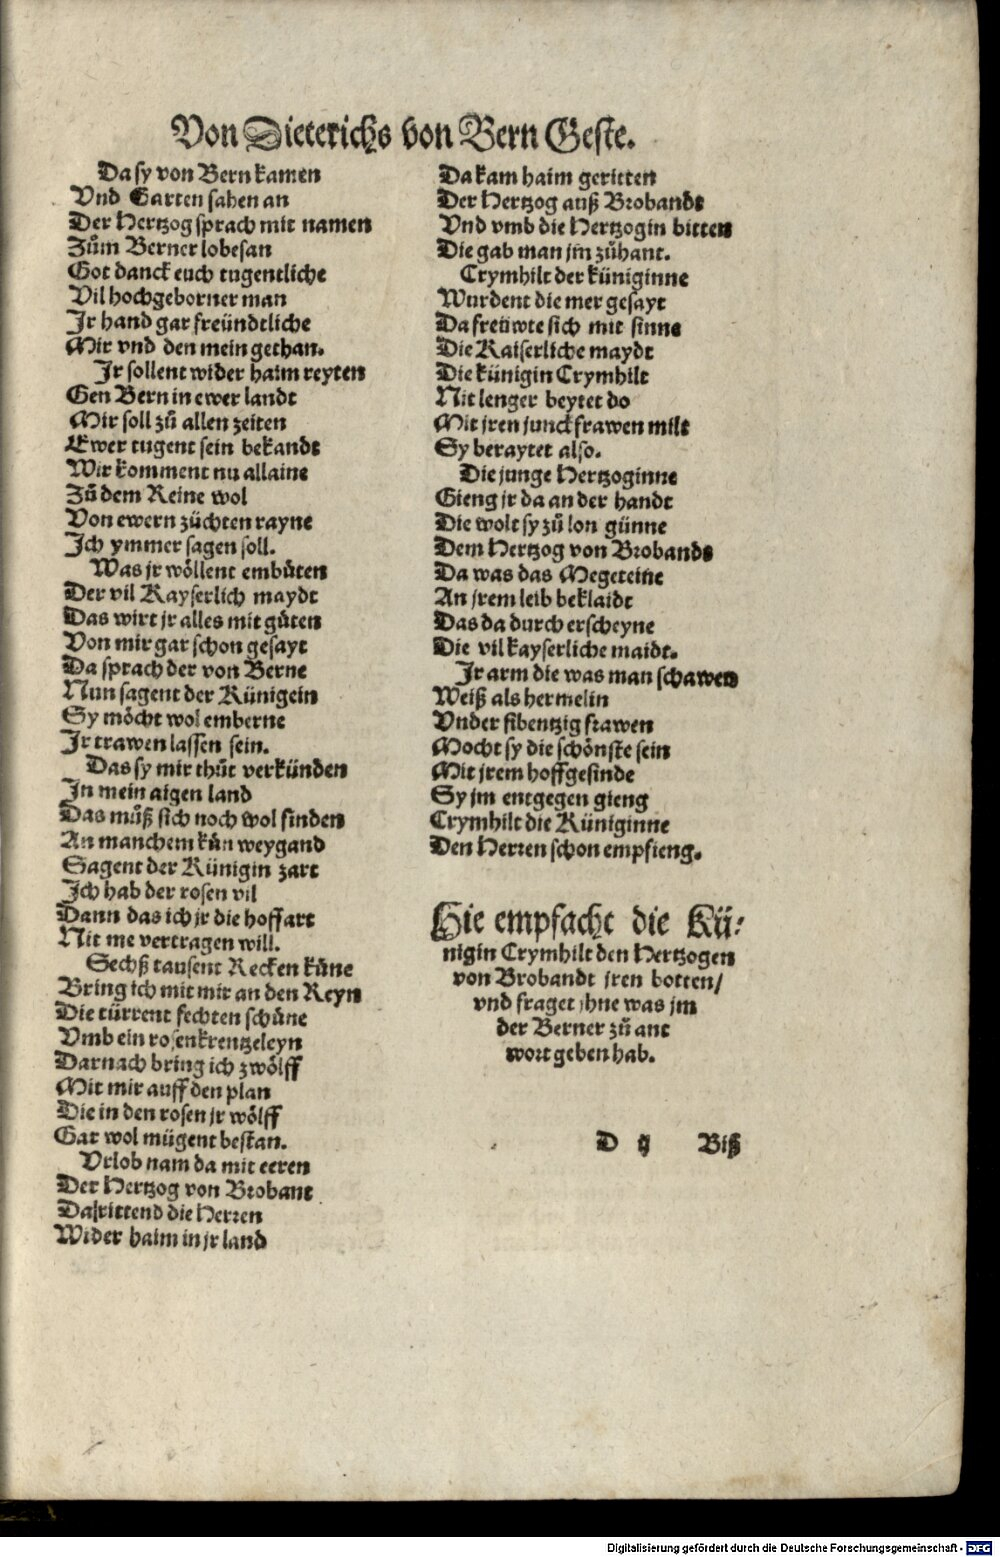 Von Dieterichs von Bern Geste.
Da sy von Bern kamen
Vnd Garten sahen an
Der Hertzog sprach mit namen
Zům Berner lobesan
Got danck euch tugentliche
Vil hochgeborner man
Jr hand gar freündtliche
Mir vnd den mein gethan.
Jr sollent wider haim reyten
Gen Bern in ewer landt
Mir soll zů allen zeiten
Ewer tugent sein bekandt
Wir komment nu allaine
Zů dem Reine wol
Von ewern züchten rayne
Jch ymmer sagen soll.
Was jr wöllent embüten
Der vil Kayserlich maydt
Das wirt jr alles mit gůten
Von mir gar schon gesayt
Da sprach der von Berne
Nun sagent der Künigein
Sy möcht wol emberne
Jr trawen lassen sein.
Das sy mir thůt verkünden
Jn mein aigen land
Das můß sich noch wol finden
An manchem kůn weygand
Sagent der Künigin zart
Jch hab der rosen vil
Dann das ich jr die hoffart
Nit me vertragen will.
Sechß tausent Recken kůne
Bring ich mit mir an den Reyn
Die türrent fechten schůne
Vmb ein rosenkrentzeleyn
Darnach bring ich zwölff
Mit mir auff den plan
Die in den rosen jr wölff
Gar wol mügent bestan.
Vrlob nam da mit eeren
Der Hertzog von Brobant
Da rittend die Herren
Wider haim in jr land
Da kam haim geritten
Der Hertzog auß Brobandt
Vnd vmb die Hertzogin bitten
Die gab man jm zůhant.
Crymhilt der küniginne
Wurdent die mer gesayt
Da freüwte sich mit sinne
Die Kaiserliche maydt
Die künigin Crymhilt
Nit lenger beytet do
Mit jren junckfrawen milt
Sy beraytet also.
Die junge Hertzoginne
Gieng jr da an der handt
Die wolt sy zů lon günne
Dem Hertzog von Brobandt
Da was das Megeteine
An jrem leib beklaidt
Das da durch erscheyne
Die vil kayserliche maidt.
Jr arm die was man schawen
Weiß als hermelin
Vnder sibentzig frawen
Mocht sy die schönste sein
Mit jrem hoffgesinde
Sy jm entgegen gieng
Crymhilt die Küniginne
Den Herren schon empfieng.
Hie empfacht die Kü-
nigin Crymhilt den Hertzogen
von Brobandt jren botten/
vnd fraget jhne was jm
der Berner zů ant
wort geben hab.
D ij Biß
Digitalisierung gefördert durch die Deutsche Forschungsgemeinschaft - DFG